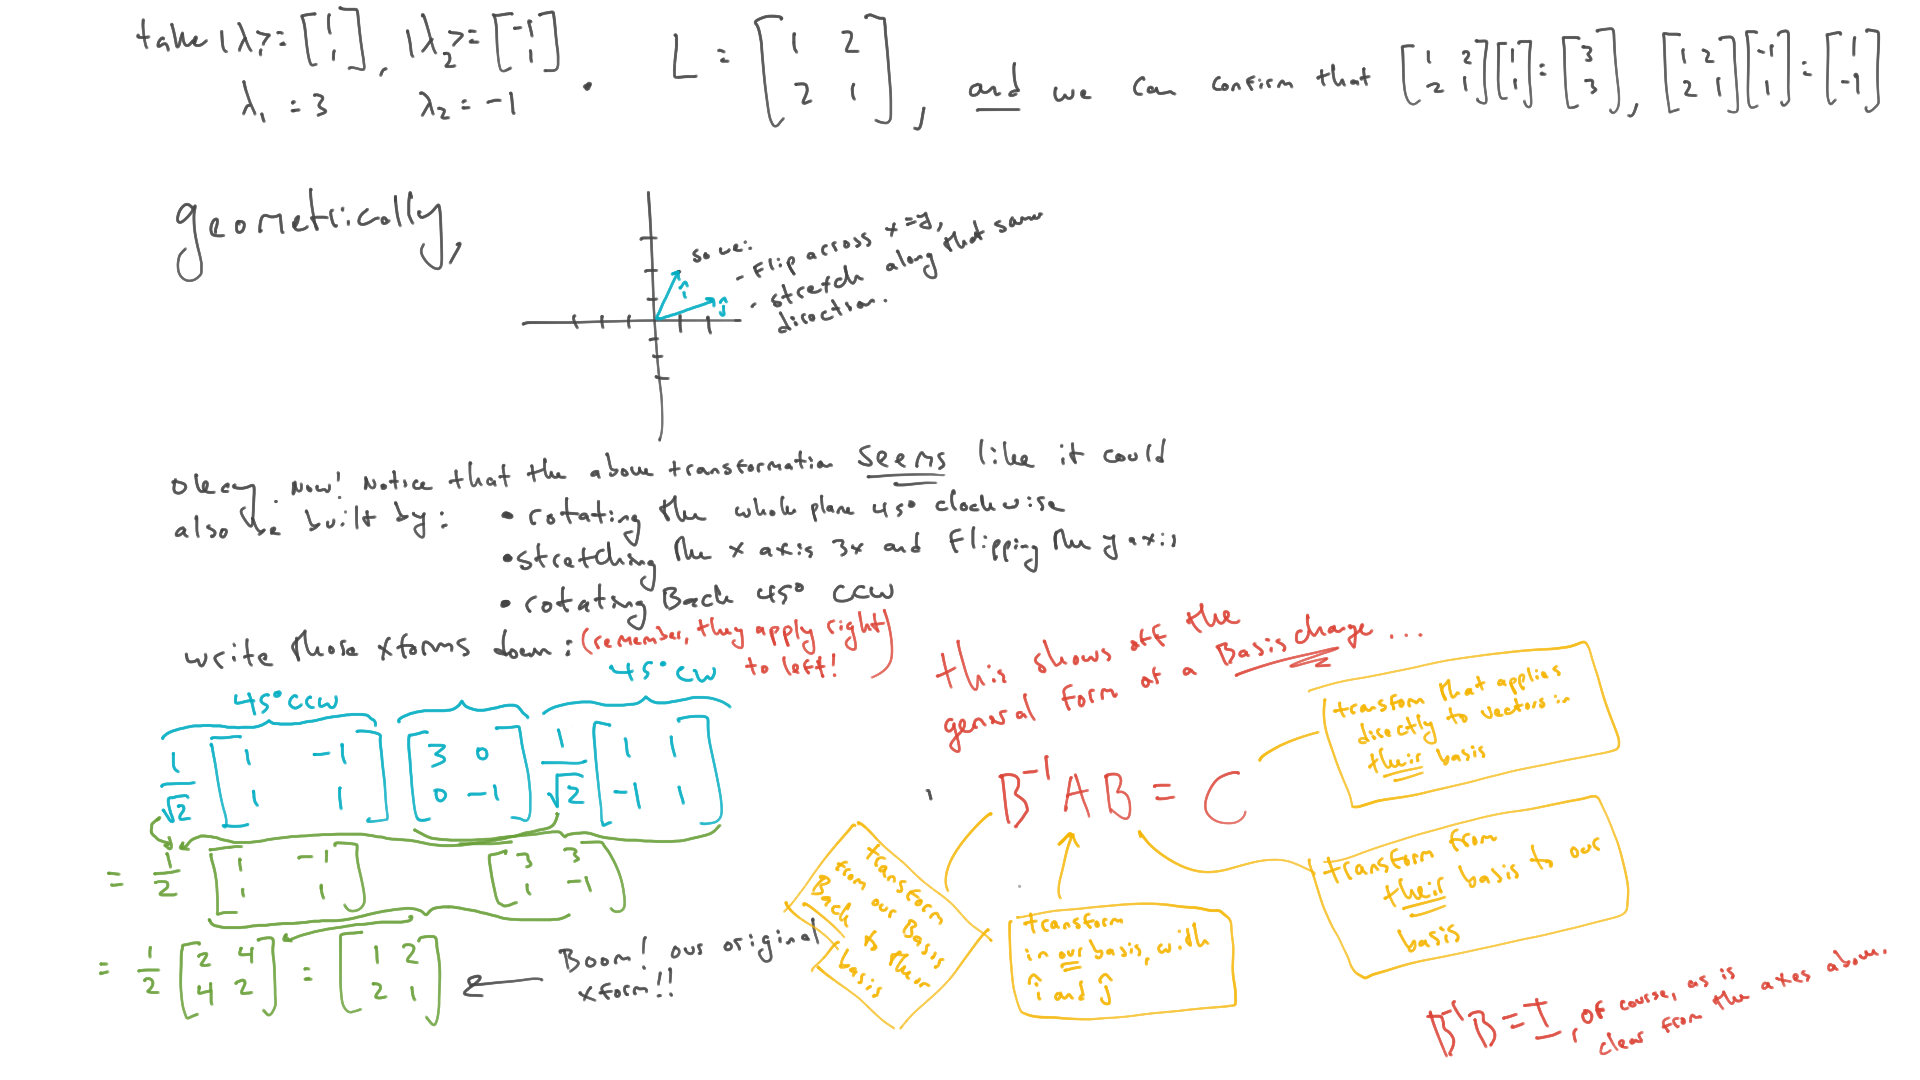 take |λ₁> = [1 1], |λ₂> = [-1 1]. L = [1 2 2 1], and we can confirm that [1 2 2 1][1 1] = [3 3], [1 2 2 1][-1 1] = [1 -1]
λ₁ = 3 λ₂ = -1
geometrically,
so we:
- Flip across x=y,
- stretch along that same
direction.
î
ĵ
Okay. Now! Notice that the above transformation seems like it could
also be built by:
• rotating the whole plane 45° clockwise
• stretching the x axis 3x and Flipping the y axis
• rotating Back 45° CCW
write those xforms down: (remember, they apply right
to left!)
45° CCW
45° CW
1/√2 [1 -1 1 1] [3 0 0 -1] 1/√2 [1 1 -1 1]
= 1/2 [1 -1 1 1] [3 3 1 -1]
= 1/2 [2 4 4 2] = [1 2 2 1]
Boom! our original
xform!!
this shows off the
general form of a Basis change...
B⁻¹AB = C
transform that applies
directly to vectors in
their basis
transform from
their basis to our
basis
transform
in our basis, with
î and ĵ
transform
from our Basis
Back to their
basis
B⁻¹B = I, of course, as is
clear from the axes above.